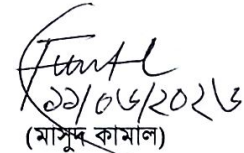 ১১/০৬/২০২৬
(মাসুদ কামাল)